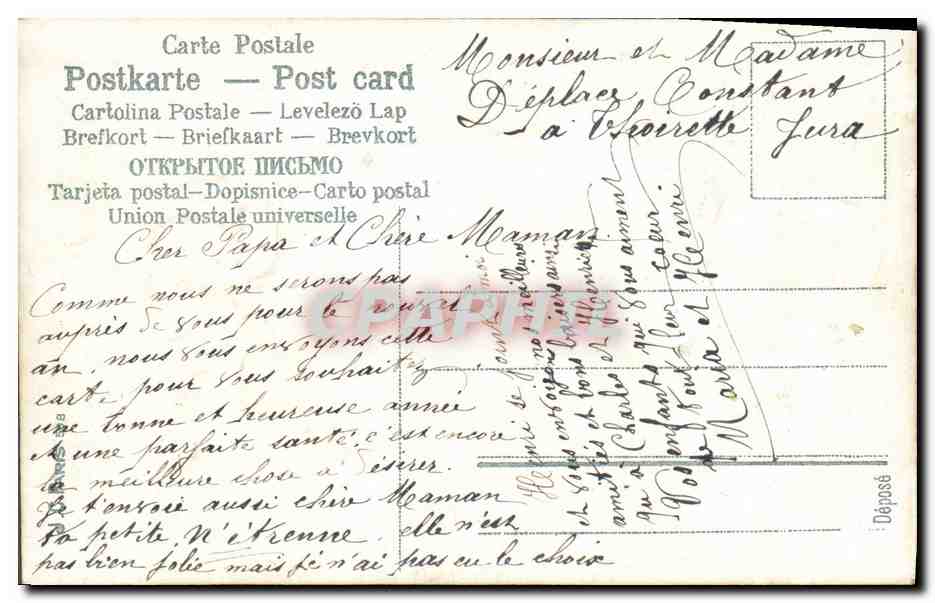 Carte Postale
Postkarte — Post card
Cartolina Postale — Levelező Lap
Brefkort — Briefkaart — Brevkort
ОТКРЫТОЕ ПИСЬМО
Tarjeta postal—Dopisnice—Carto postal
Union Postale universelle
Monsieur et Madame
Déplace Constant
à Thoirette Jura
Cher Papa et Chère Maman
Comme nous ne serons pas
auprès de vous pour le nouvel
an, nous vous envoyons cette
carte pour vous souhaitez
une bonne et heureuse année
et une parfaite santé c'est encore
la meilleure chose à désirer.
Je t'envoie aussi chère Maman
ta petite N'étrenne. elle n'est
pas bien jolie mais je n'ai pas eu le choix
Henri se joint à moi
et vous envoyons nos meilleurs
amitiés et bons baisers ainsi
qu'à Charles et
Vos enfants qui vous aiment
de tout leur coeur
Maria et Henri
CPARAMA
PARIS
Déposé